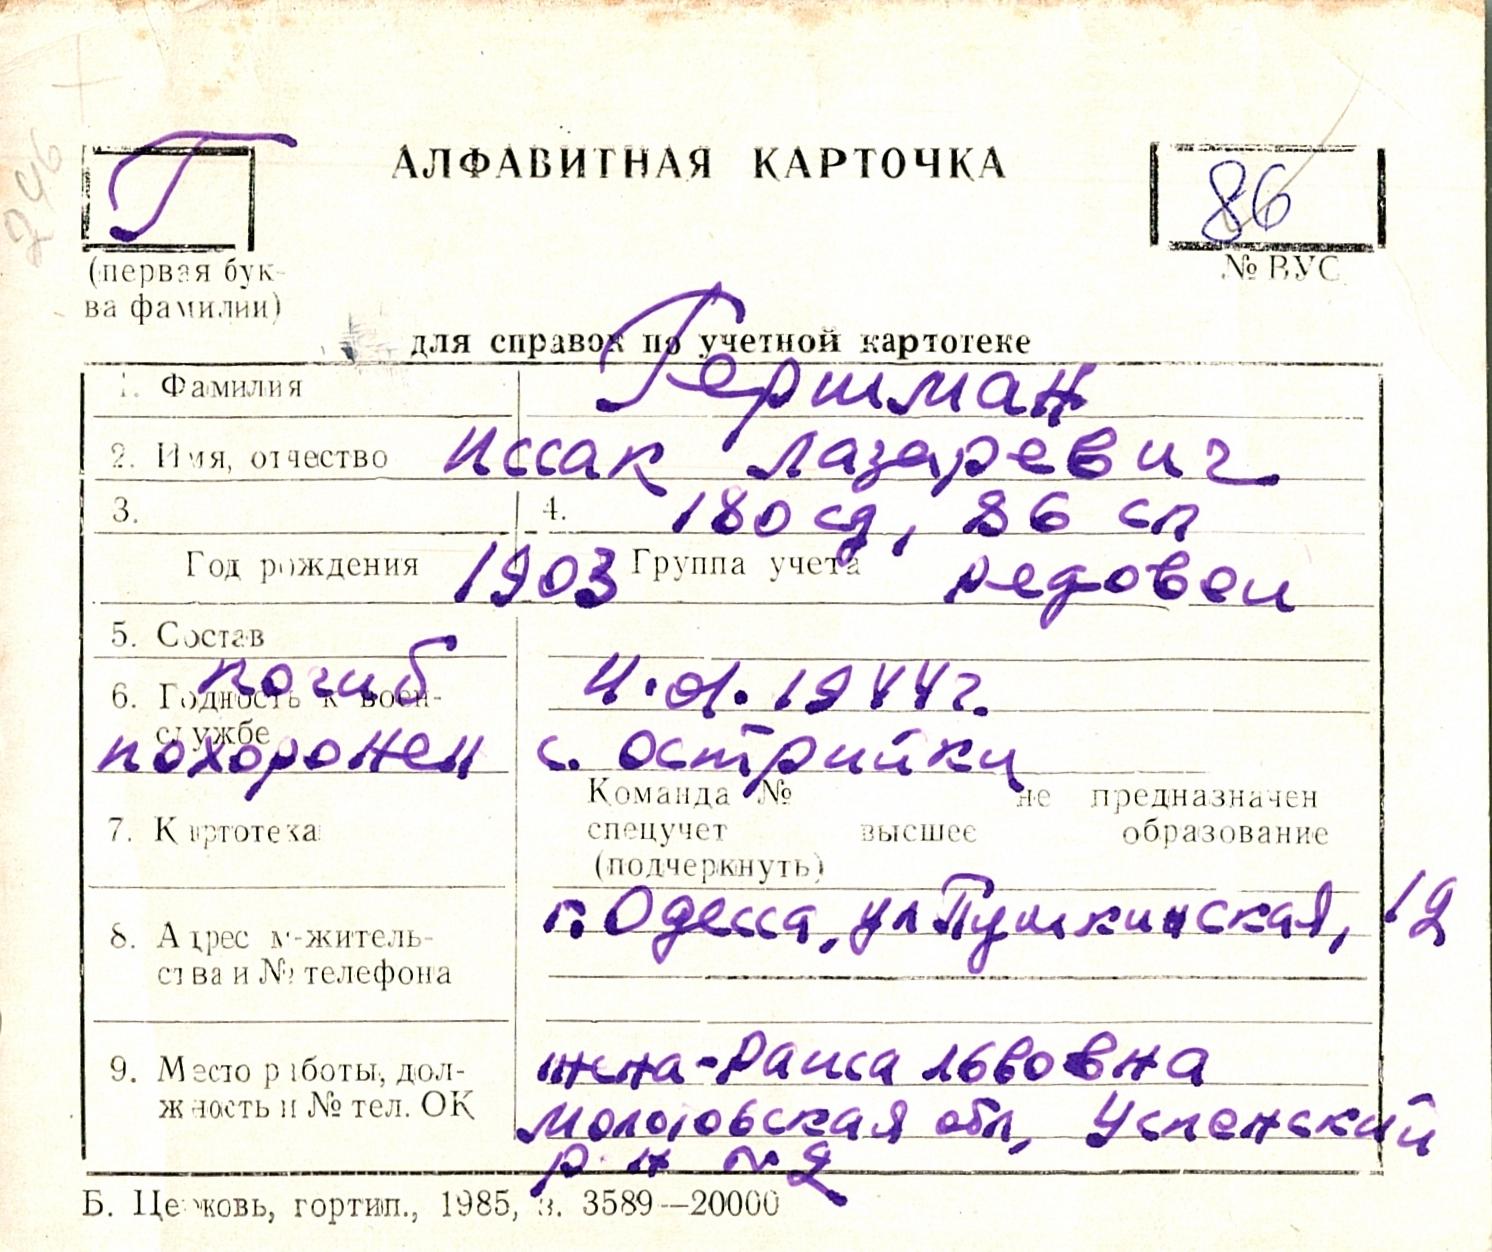 246
Г
АЛФАВИТНАЯ КАРТОЧКА
86
(первая бук-
ва фамилии)
№ ВУС
для справок по учетной картотеке
1. Фамилия Гершман
2. Имя, отчество Иссак Лазаревич
3. 4. 180 сд, 86 сп
Год рождения 1903 Группа учета редовои
5. Состав
погиб 4.01.1944г.
6. Годность к воен-
службе
похоронен с. Острийки
Команда № не предназначен
7. Картотека спецучет высшее образование
(подчеркнуть)
г. Одесса, ул Пушкинская, 12
8. Адрес м-житель-
ства и № телефона
9. Место работы, дол-
жность и № тел. ОК
жена-Раиса Львовна
Молотовская обл, Успенский
р-н №2
Б. Церковь, гортип., 1985, з. 3589—20000